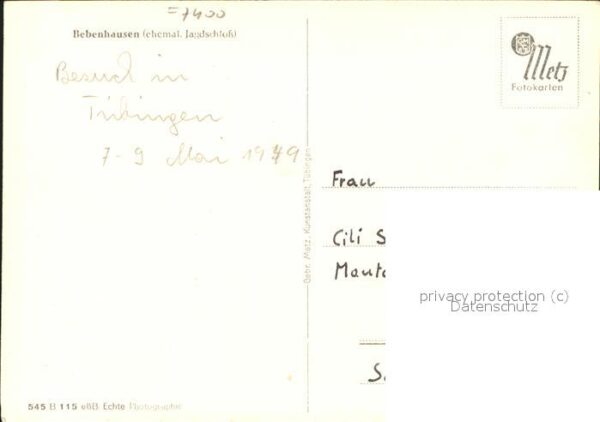 =7400
Bebenhausen (ehemal. Jagdschloß)
Besuch in
Tübingen
7-9 Mai 1979
Metz
Fotokarten
Gebr. Metz, Kunstanstalt, Tübingen
Frau
Cili S
Manto
S
privacy protection (c)
Datenschutz
545 B 115 eßB Echte Photographie